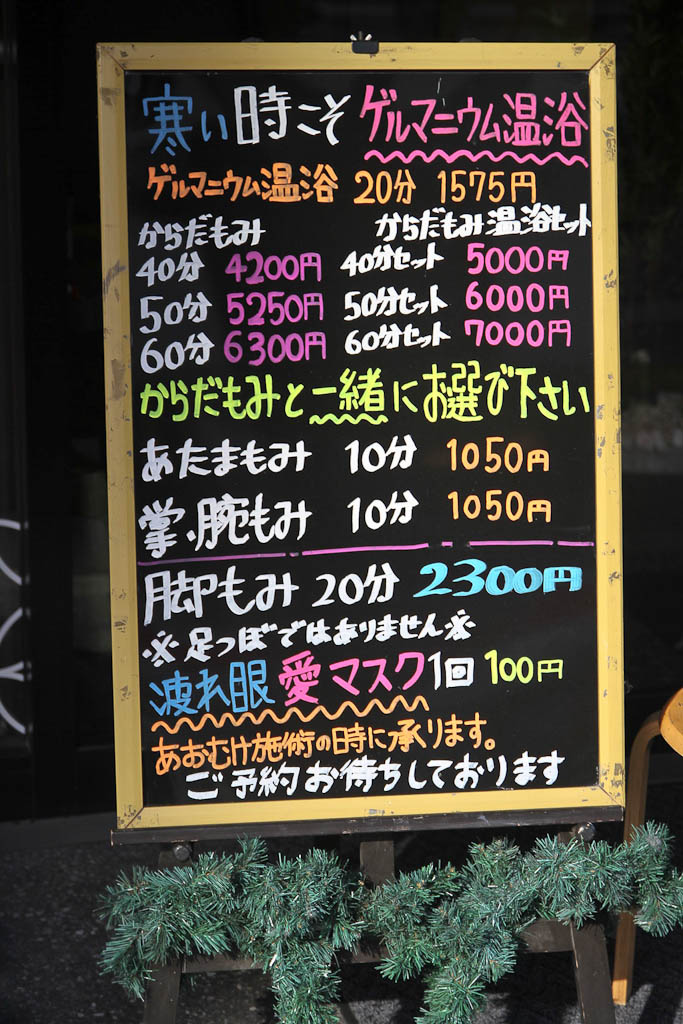 寒い時こそ ゲルマニウム温浴
ゲルマニウム温浴 20分 1575円
からだもみ からだもみ温浴セット
40分 4200円 40分セット 5000円
50分 5250円 50分セット 6000円
60分 6300円 60分セット 7000円
からだもみと一緒にお選び下さい
あたまもみ 10分 1050円
掌、腕もみ 10分 1050円
脚もみ 20分 2300円
※足つぼではありません※
疲れ眼 愛マスク1回 100円
あおむけ施術の時に承ります。
ご予約お待ちしております